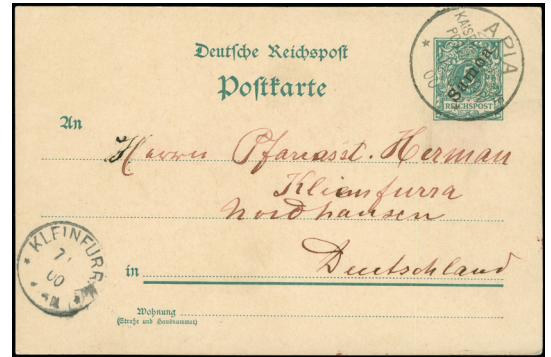 Deutsche Reichspost
Postkarte
APIA
KAISERL.
00
Samoa
REICHSPOST
An
Herrn Pfarrasst. Herman
Klienfurra
Nordhausen
in Deutschland
KLEINFURRA
7
00
Wohnung
(Straße und Hausnummer)